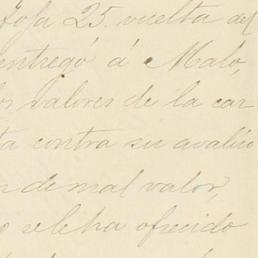 foja 25. vuelta del
entregó á Malo,
los valores de la car
ta contra su avalúo
de mal valor,
se le ha ofrecido